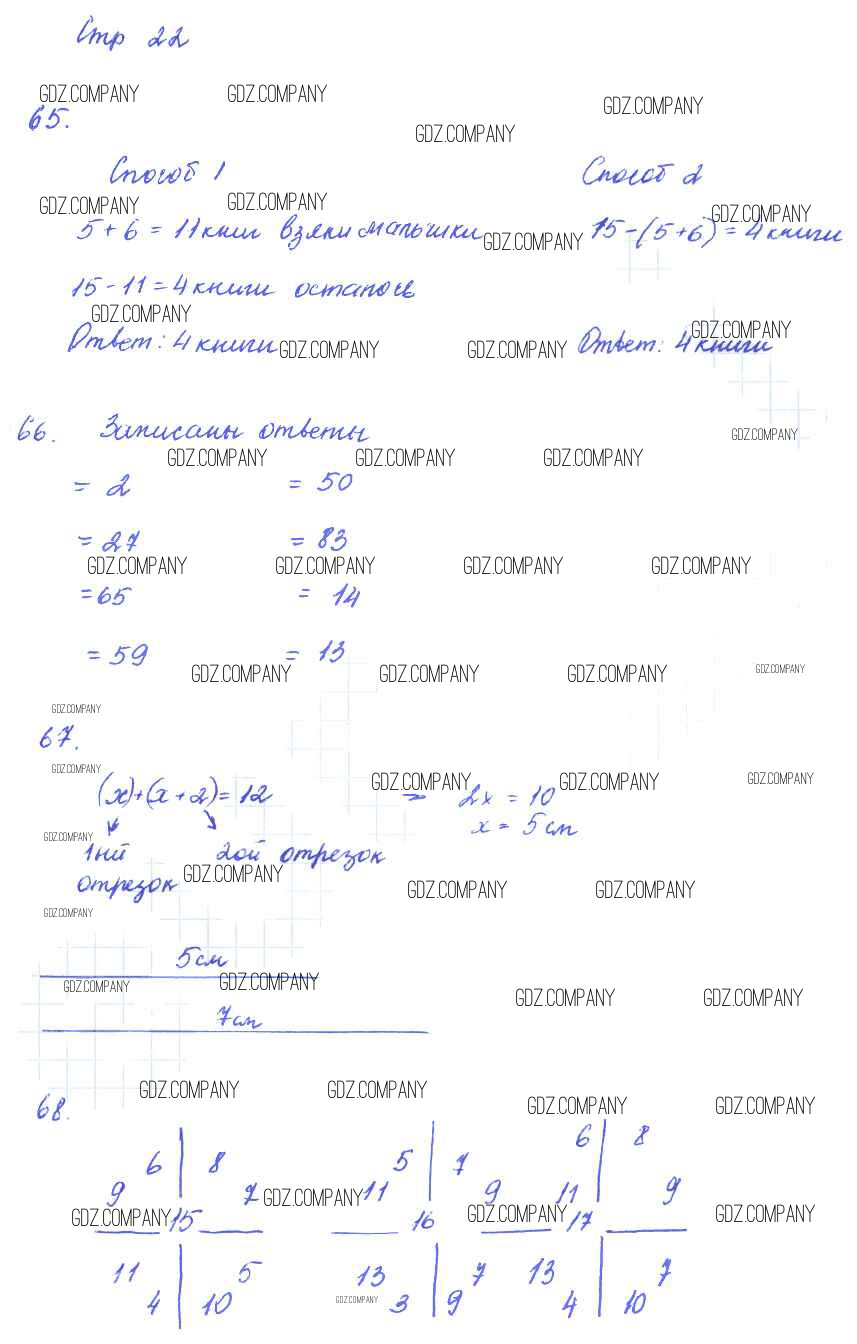 Стр 22
GDZ.COMPANY GDZ.COMPANY GDZ.COMPANY
65. GDZ.COMPANY
Способ 1 Способ 2
GDZ.COMPANY GDZ.COMPANY GDZ.COMPANY
5 + 6 = 11 книг взяли малышки GDZ.COMPANY 15 - (5+6) = 4 книги
15 - 11 = 4 книги осталось
GDZ.COMPANY GDZ.COMPANY
Ответ: 4 книги GDZ.COMPANY GDZ.COMPANY Ответ: 4 книги
66. Записаны ответы GDZ.COMPANY
GDZ.COMPANY GDZ.COMPANY GDZ.COMPANY
= 2 = 50
= 27 = 83
GDZ.COMPANY GDZ.COMPANY GDZ.COMPANY GDZ.COMPANY
= 65 = 14
= 59 = 13
GDZ.COMPANY GDZ.COMPANY GDZ.COMPANY GDZ.COMPANY
GDZ.COMPANY
67.
GDZ.COMPANY GDZ.COMPANY GDZ.COMPANY GDZ.COMPANY
(x)+(x+2)=12 2x = 10
x = 5 см
GDZ.COMPANY
1ный 2ой отрезок
отрезок GDZ.COMPANY GDZ.COMPANY GDZ.COMPANY
GDZ.COMPANY
5 см
GDZ.COMPANY GDZ.COMPANY GDZ.COMPANY GDZ.COMPANY
7 см
GDZ.COMPANY GDZ.COMPANY GDZ.COMPANY GDZ.COMPANY
68.
6 8 5 7 6 8
9 7 GDZ.COMPANY 11 9 11 9
GDZ.COMPANY 15 16 GDZ.COMPANY 17 GDZ.COMPANY
11 5 13 7 13 7
4 10 GDZ.COMPANY 3 9 4 10